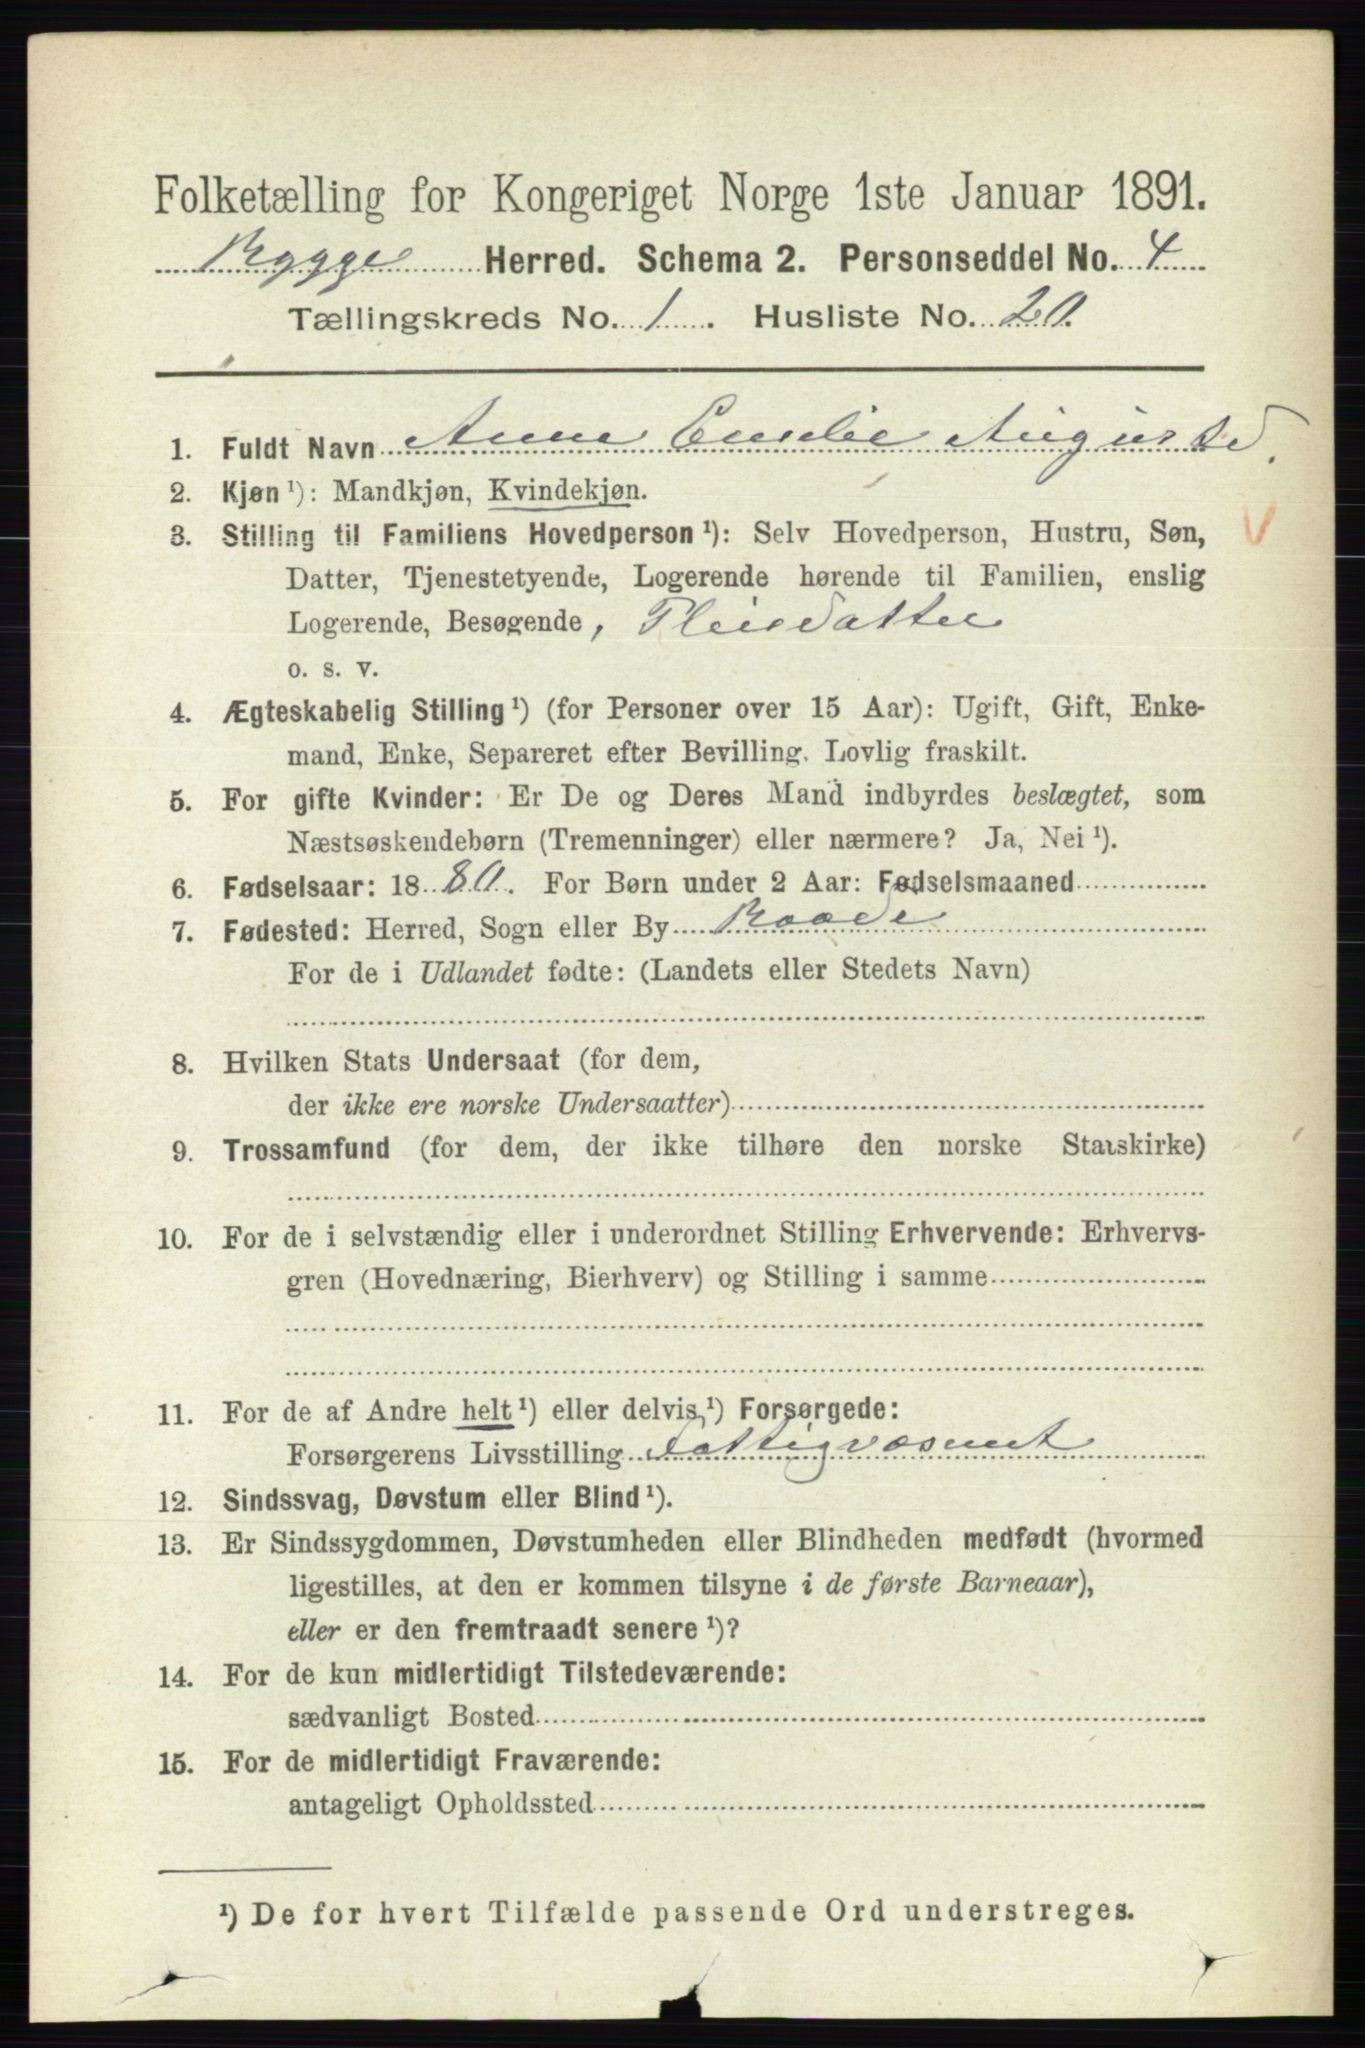 Folketælling for Kongeriget Norge 1ste Januar 1891.
Rygge Herred. Schema 2. Personseddel No. 4
Tællingskreds No. 1. Husliste No. 20.
1. Fuldt Navn Anne Emilie Auguste.
2. Kjøn ¹): Mandkjøn, Kvindekjøn.
3. Stilling til Familiens Hovedperson ¹): Selv Hovedperson, Hustru, Søn,
Datter, Tjenestetyende, Logerende hørende til Familien, enslig
Logerende, Besøgende, Pleiedatter
o. s. v.
4. Ægteskabelig Stilling ¹) (for Personer over 15 Aar): Ugift, Gift, Enke-
mand, Enke, Separeret efter Bevilling. Lovlig fraskilt.
5. For gifte Kvinder: Er De og Deres Mand indbyrdes beslægtet, som
Næstsøskendebørn (Tremenninger) eller nærmere? Ja, Nei ¹).
6. Fødselsaar: 1880. For Børn under 2 Aar: Fødselsmaaned
7. Fødested: Herred, Sogn eller By Raade
For de i Udlandet fødte: (Landets eller Stedets Navn)
8. Hvilken Stats Undersaat (for dem,
der ikke ere norske Undersaatter)
9. Trossamfund (for dem, der ikke tilhøre den norske Statskirke)
10. For de i selvstændig eller i underordnet Stilling Erhvervende: Erhvervs-
gren (Hovednæring, Bierhverv) og Stilling i samme
11. For de af Andre helt ¹) eller delvis ¹) Forsørgede:
Forsørgerens Livsstilling Fattigvæsenet
12. Sindssvag, Døvstum eller Blind ¹).
13. Er Sindssygdommen, Døvstumheden eller Blindheden medfødt (hvormed
ligestilles, at den er kommen tilsyne i de første Barneaar),
eller er den fremtraadt senere ¹)?
14. For de kun midlertidigt Tilstedeværende:
sædvanligt Bosted
15. For de midlertidigt Fraværende:
antageligt Opholdssted
¹) De for hvert Tilfælde passende Ord understreges.